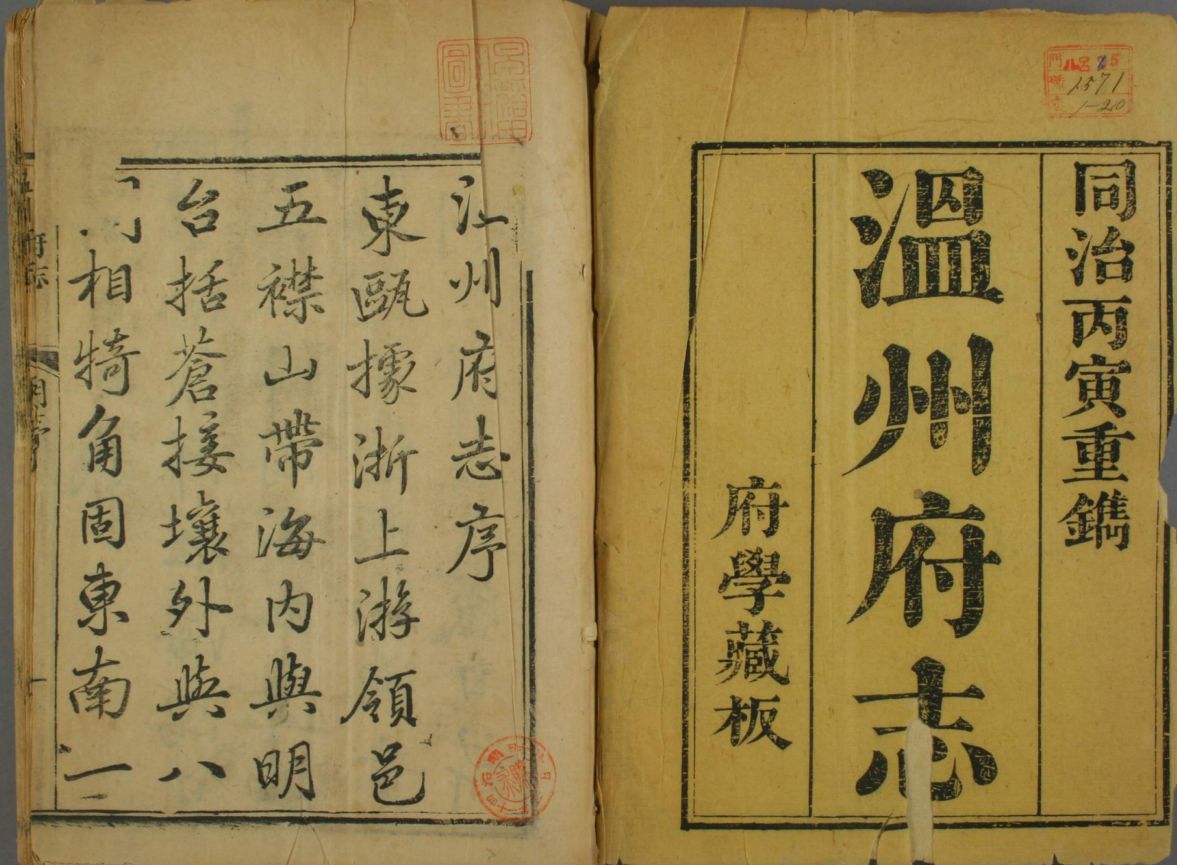 同治丙寅重鐫
溫州府志
府學藏板
1571
1-20
州府志序
東甌據浙上游領邑
五襟山帶海內與明
台括蒼接壤外與八
相犄角固東南一